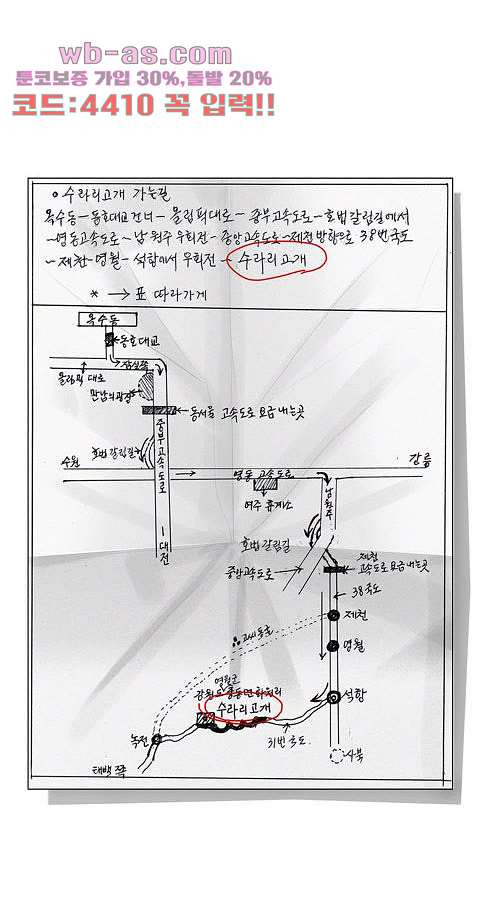 wb-as.com
툰코보증 가입 30%,돌발 20%
코드:4410 꼭 입력!!
○ 수라리고개 가는길
옥수동-동호대교 건너- 올림픽대로 - 중부고속도로-호법갈림길에서
-영동고속도로 - 남원주 우회전 - 중앙고속도로-제천방향으로 38번국도
- 제천-영월 - 석항에서 우회전 - 수라리고개
* → 표 따라가게
옥수동
동호대교
잠실쪽
올림픽 대로
만남의광장
동서울 고속도로 요금 내는곳
중부고속도로
호법 갈림길
수원
영동 고속도로
강릉
여주 휴게소
남원주
호법 갈림길
대전
중앙고속도로
제천
고속도로 요금 내는곳
38국도
제천
영월
영월군
강원도 중동면
석항
수라리고개
31번 국도
녹전
태백 쪽
사북